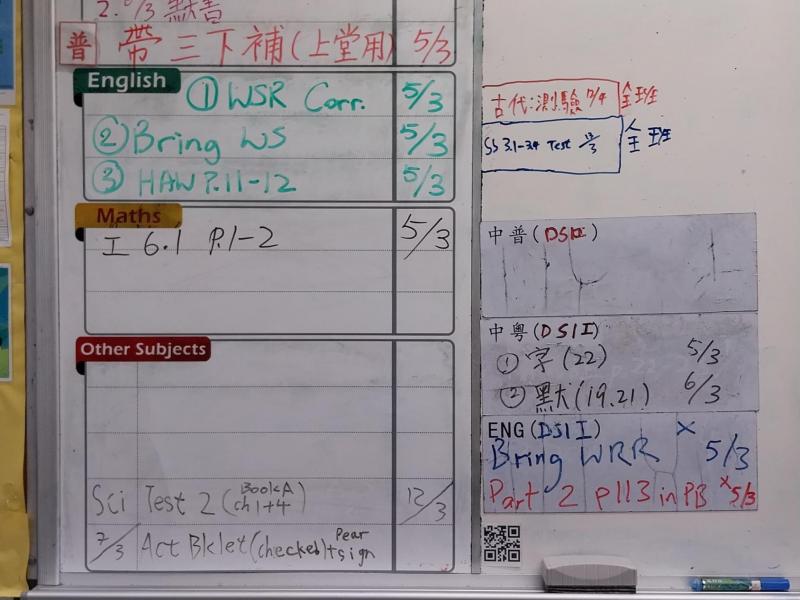 2. 6/3 默書
普 帶三下補(上堂用) 5/3
English
① WSR Corr. 5/3
② Bring WS 5/3
③ HAW P.11-12 5/3
Maths
工 6.1 P.1-2 5/3
Other Subjects
Sci Test 2 (Book A ch 1+4) 12/3
7/3 Act Bklet (checked) + Pear sign
古代:測驗 全班
SS 3.1-3.4 Test 全班
中普(DSII)
中粵(DSII)
① 字(22) 5/3
② 默(19.21) 6/3
ENG(DSII)
Bring WRR × 5/3
Part 2 p113 in PB × 5/3